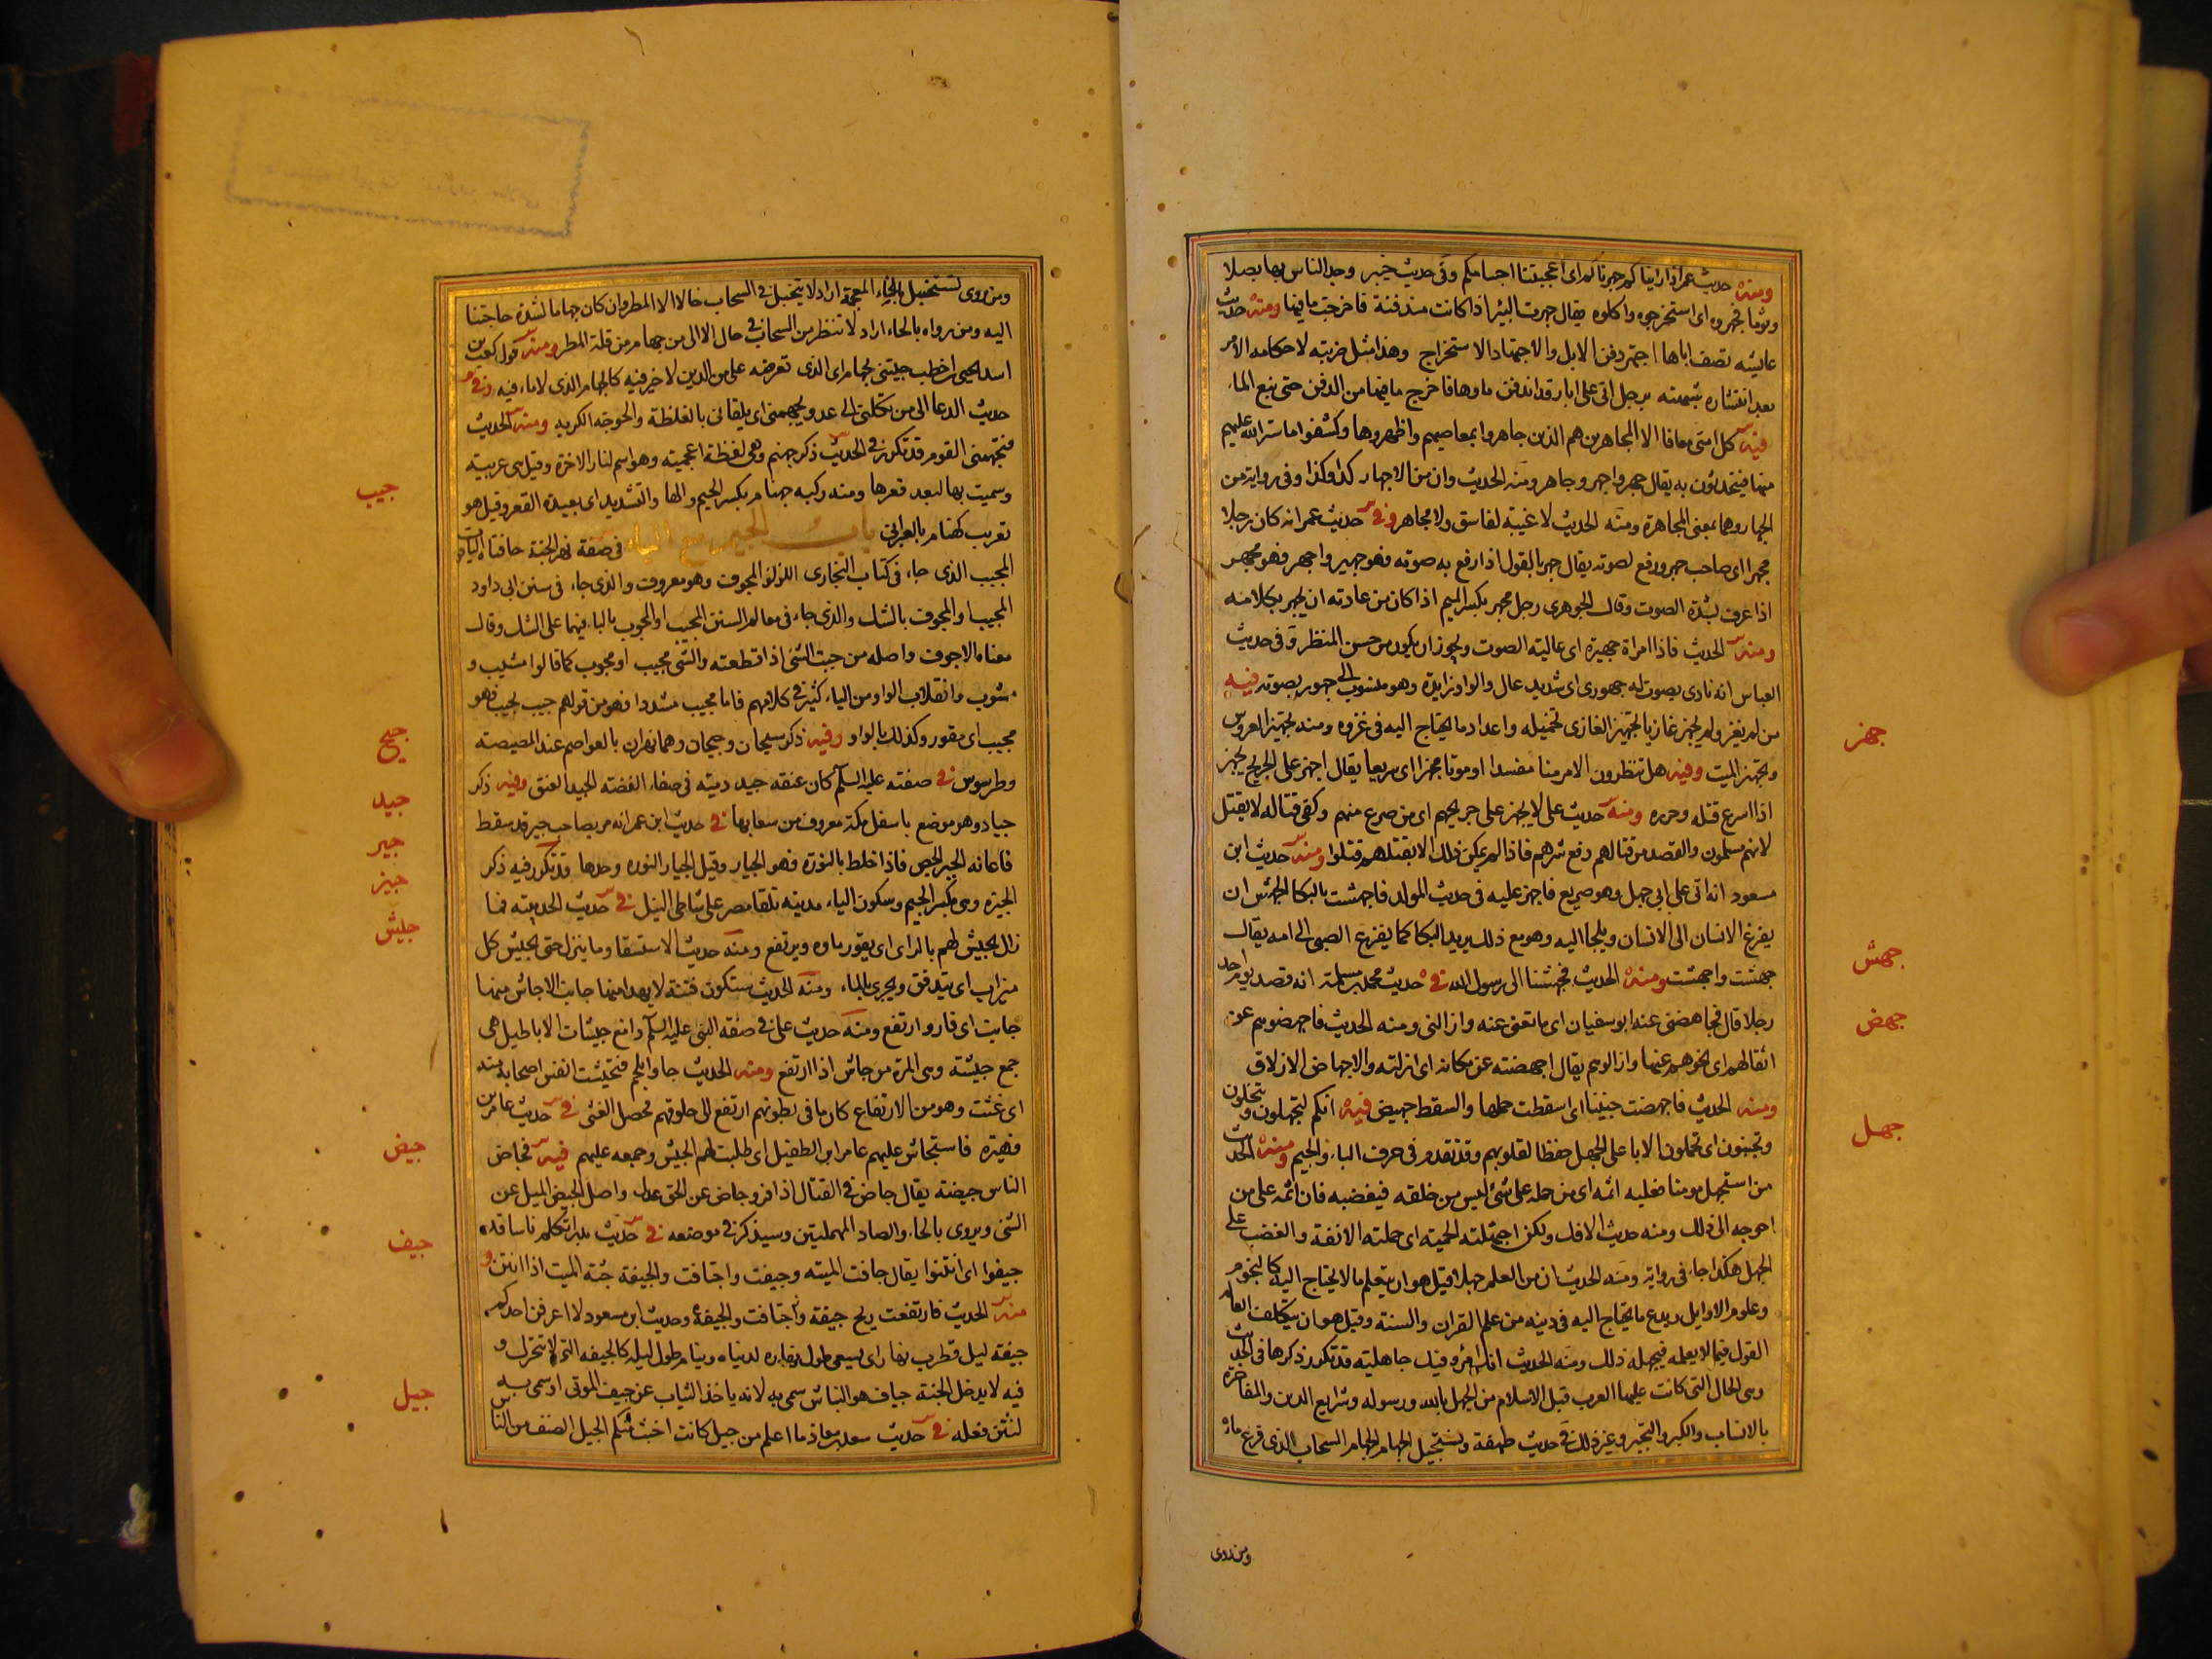 ومنه حديث عمر اذا رايناكم جهرناكم اى اعجبتنا اجسامكم وفى حديث خيبر وجد الناس بها بصلا
وثوما فجهروه اى استخرجوه واكلوه يقال جهرت البئر اذا كانت مندفنة فاخرجت ما فيها ومنه حديث
عايشه تصف اباها اجتهر دفن الابل والاجتهاد الاستخراج وهذا مثل ضربته لاحكامه الامر
بعد انتشاره شبهته برجل اتى على ابار قد اندفن ماوها فاخرج ما فيها من الدفن حتى نبع الماء
فيه كل امتى معافا الا المجاهرين هم الذين جاهروا بمعاصيهم واظهروها وكشفوا ما ستر الله عليهم
منها فيتحدثون به يقال جهر واجهر وجاهر ومنه الحديث وان من الاجهار كذا وكذا وفى رواية من
الجهار وهما بمعنى المجاهرة ومنه الحديث لا غيبة لفاسق ولا مجاهر وفى حديث عمر انه كان رجلا
مجهرا اى صاحب جهر ورفع لصوته يقال جهر بالقول اذا رفع به صوته فهو جهير واجهر فهو مجهر
اذا عرف بشدة الصوت وقال الجوهرى رجل مجهر بكسر الميم اذا كان من عادته ان يجهر بكلامه
ومنه الحديث فاذا امراة جهيرة اى عالية الصوت ويجوز ان يكون من حسن المنظر وفى حديث
العباس انه نادى بصوت له جهورى اى شديد عال والواو زايدة وهو منسوب الى جهور بصوته فيه
من لم يغز ولم يجهز غازيا تجهيز الغازى تحميله واعداد ما يحتاج اليه فى غزوه ومنه تجهيز العروس
وتجهيز الميت وفيه هل تنظرون الا مرضا مفسدا او موتا مجهزا اى سريعا يقال اجهز على الجريح يجهز
اذا اسرع قتله وحرره ومنه حديث على لا يجهز على جريحهم اى من صرع منهم وكفى قتاله لا يقتل
لانهم مسلمون والقصد من قتالهم دفع شرهم فاذا لم يمكن ذلك الا بقتلهم قتلوا ومنه حديث ابن
مسعود انه اتى على ابى جهل وهو صريع فاجهز عليه فى حديث المولد فاجهشت بالبكا الجهش ان
يفزع الانسان الى الانسان ويلجا اليه وهو مع ذلك يريد البكا كما يفزع الصبى الى امه يقال
جهشت واجهشت ومنه الحديث فجهشنا الى رسول الله فى حديث محمد بن مسلمة انه قصد يوم احد
رجلا قال فجاهضنى عنه ابو سفيان اى مانعنى عنه وازالنى ومنه الحديث فاجهضوهم عن
اثقالهم اى نحوهم عنها وازالوهم يقال اجهضته عن مكانه اى ازلته والاجهاض الازلاق
ومنه الحديث فاجهضت جنينا اى اسقطت حملها والسقط جهيض فيه انكم لتجهلون وتبخلون
وتجبنون اى تحملون الابا على الجهل حفظا لقلوبهم وقد تقدم فى حرف الباء والجيم ومنه الحديث
من استجهل مومنا فعليه اثمه اى من حمله على شئ ليس من خلقه فيغضبه فان اثمه على من
احوجه الى ذلك ومنه حديث الافك ولكن اجتهلته الحمية اى حملته الانفة والغضب على
الجهل هكذا جاء فى رواية ومنه الحديث ان من العلم جهلا قيل هو ان يتعلم ما لا يحتاج اليه كالنجوم
وعلوم الاوايل ويدع ما يحتاج اليه فى دينه من علم القران والسنة وقيل هو ان يتكلف العالم
القول فيما لا يعلمه فيجهله ذلك ومنه الحديث انك امرؤ فيك جاهلية قد تكرر ذكرها فى الحديث
وهى الحال التى كانت عليها العرب قبل الاسلام من الجهل بالله ورسوله وشرايع الدين والمفاخرة
بالانساب والكبر والتجبر وغير ذلك فى حديث طهفة ونستجيل الجهام الجهام السحاب الذى فرغ ماؤه
ومن روى
جهز
جهش
جهض
جهل
ومن روى نستخيل بالخاء المعجمة اراد لا نتخيل فى السحاب خالا الا المطر وان كان جهاما لشدة حاجتنا
اليه ومن رواه بالحاء اراد لا ننظر من السحاب فى حال الا الى من جهام من قلة المطر ومنه قول كعب بن
اسد لحيى بن اخطب جيتنى بجهام اى الذى تعرضه على من الدين لا خير فيه كالجهام الذى لا ماء فيه وفى
حديث الدعا الى من تكلنى الى عدو يتجهمنى اى يلقانى بالغلظة والوجه الكريه ومنه الحديث
فتجهمنى القوم قد تكرر فى الحديث ذكر جهنم وهى لفظة اعجمية وهو اسم لنار الاخرة وقيل هى عربية
وسميت بها لبعد قعرها ومنه ركية جهنام بكسر الجيم والها والتشديد اى بعيدة القعر وقيل هو
تعريب كهنام بالعبرانى باب الجيم مع الياء فى صفة نهر الجنة حافتاه الياقوت
المجيب الذى جاء فى كتاب البخارى اللؤلؤ المجوف وهو معروف والذى جاء فى سنن ابى داود
المجيب او المجوف بالشك والذى جاء فى معالم السنن المجيب او المجوب بالباء فيهما على الشك وقال
معناه الاجوف واصله من جبت الشئ اذا قطعته والشئ مجيب او مجوب كما قالوا مشيب و
مشوب وانقلاب الواو من الياء كثير فى كلامهم فاما مجيب مشددا فهو من قولهم جيب يجيب فهو
مجيب اى مقور وكذلك بالواو وفيه ذكر سيحان وجيحان وهما نهران بالعواصم عند المصيصة
وطرسوس فى صفته عليه السلم كان عنقه جيد دمية فى صفاء الفضة الجيد العنق وفيه ذكر
جياد وهو موضع باسفل مكة معروف من شعابها فى حديث ابن عمر انه مر بصاحب جير قد سقط
فاعانه الجير الجص فاذا خلط بالنورة فهو الجيار وقيل الجيار النوره وحدها قد تكرر فيه ذكر
الجيزة وهى بكسر الجيم وسكون الياء مدينة تلقا مصر على شاطى النيل فى حديث الحديبية فما
زال يجيش لهم بالرى اى يفور ماوه ويرتفع ومنه حديث الاستسقا وما ينزل حتى يجيش كل
ميزاب اى يتدفق ويجرى بالماء ومنه الحديث ستكون فتنة لا يهدا منها جانب الا جاش منها
جانب اى فار وارتفع ومنه حديث على فى صفة النبى عليه السلم دامغ جيشات الاباطيل هى
جمع جيشة وهى المرة من جاش اذا ارتفع ومنه الحديث جاوا بلحم فتجيشت انفس اصحابه منه
اى غثت وهو من الارتفاع كان ما فى بطونهم ارتفع الى حلوقهم فحصل الغثى فى حديث عامر بن
فهيرة فاستجاش عليهم عامر ابن الطفيل اى طلب لهم الجيش وجمعه عليهم فيه فجاض
الناس جيضة يقال جاض فى القتال اذا فر وجاض عن الحق عدل واصل الجيض الميل عن
الشئ ويروى بالحاء والصاد المهملتين وسيذكر فى موضعه فى حديث بدر اتكلم ناسا قد
جيفوا اى انتنوا يقال جافت الميته وجيفت واجتافت والجيفة جثة الميت اذا انتن و
منه الحديث فارتفعت ريح جيفة واجتافت والجيفة وحديث ابن مسعود لا اعرفن احدكم
جيفة ليل قطرب نهار اى يسعى طول نهاره لدنياه وينام طول ليله كالجيفه التى لا تتحرك و
فيه لا يدخل الجنة جياف هو النباش سمى به لانه ياخذ الثياب عن جيف الموتى او سمى به
لنتن فعله فى حديث سعد بن معاذ ما اعلم من جيل كانت اخبث منكم الجيل الصنف من الناس
جيب
جيح
جيد
جير
جيز
جيش
جيض
جيف
جيل